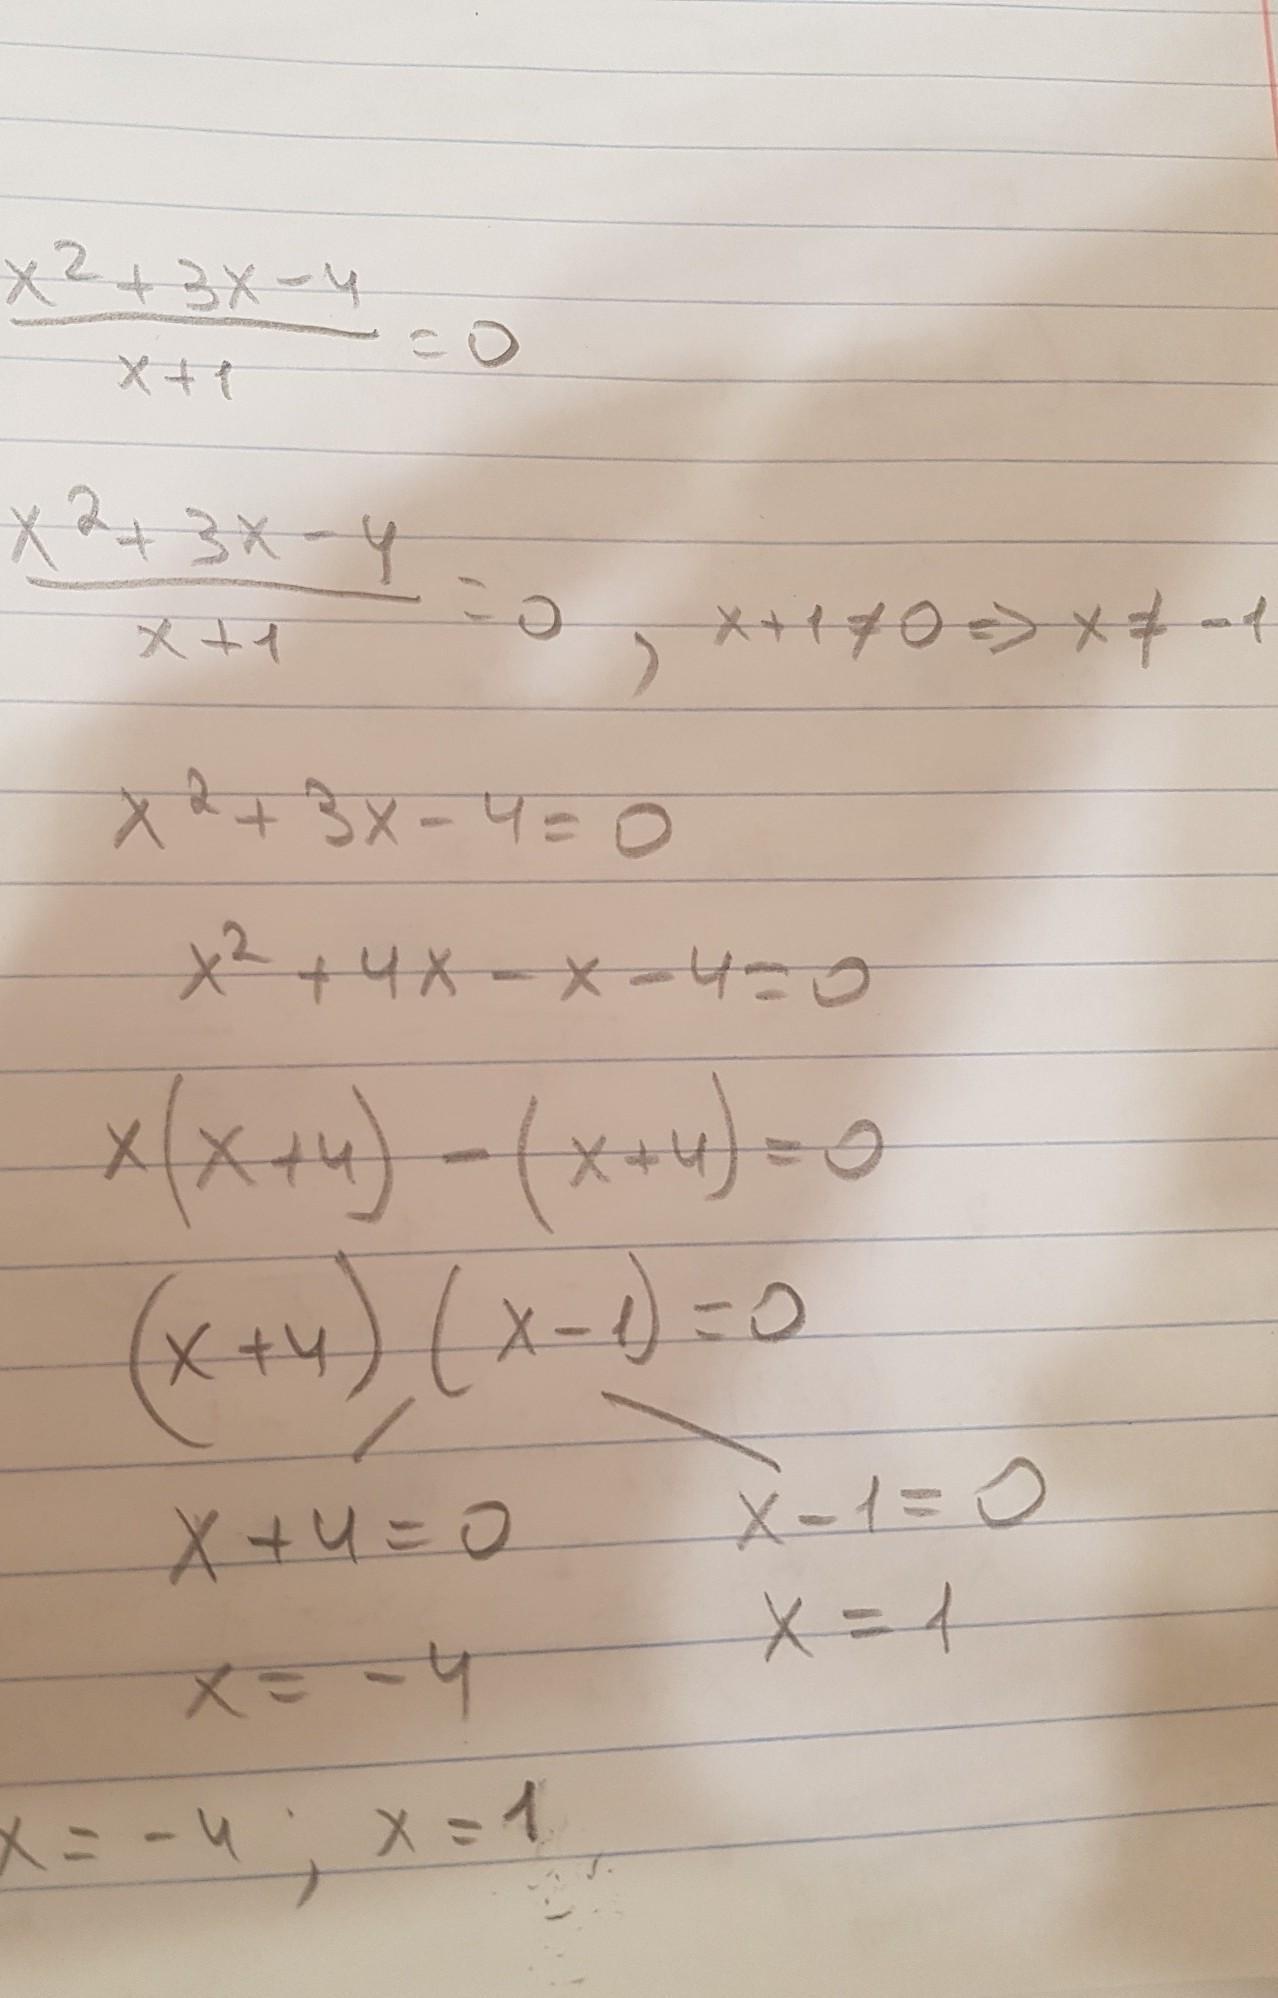 x² + 3x - 4
x + 1
= 0
x² + 3x - 4
x + 1
= 0 , x + 1 ≠ 0 ⇒ x ≠ -1
x² + 3x - 4 = 0
x² + 4x - x - 4 = 0
x(x + 4) - (x + 4) = 0
(x + 4) (x - 1) = 0
x + 4 = 0
x - 1 = 0
x = -4
x = 1
x = -4 ; x = 1